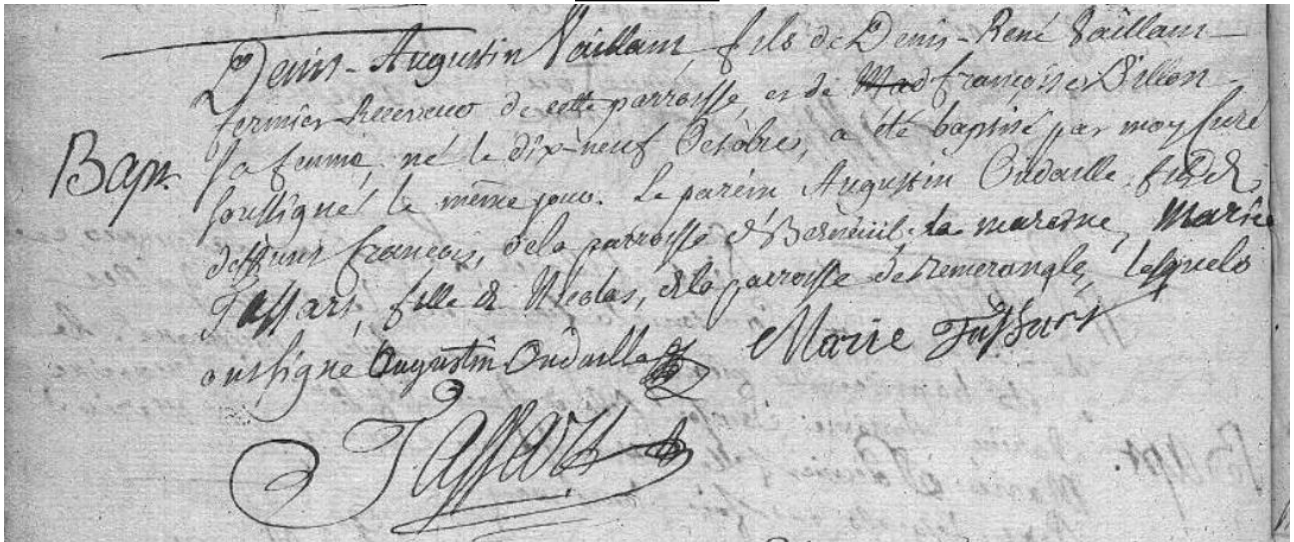 Denis-Augustin Vaillant, fils de Denis-René Vaillant
fermier Receveur de cette parroisse, et de Mad françoise Dillon
Bapt. sa femme, né le dix-neuf Octobre, a été baptisé par moy Curé
soussigné le même jour. Le parein Augustin Oudaille, fils de
deffunt françois, de la parroisse de Berneuil, la mareine, Marie
Tassart, fille de Nicolas, de la parroisse de remerangle, lesquels
ont signé Augustin Oudaille Marie Tassart
Tassart